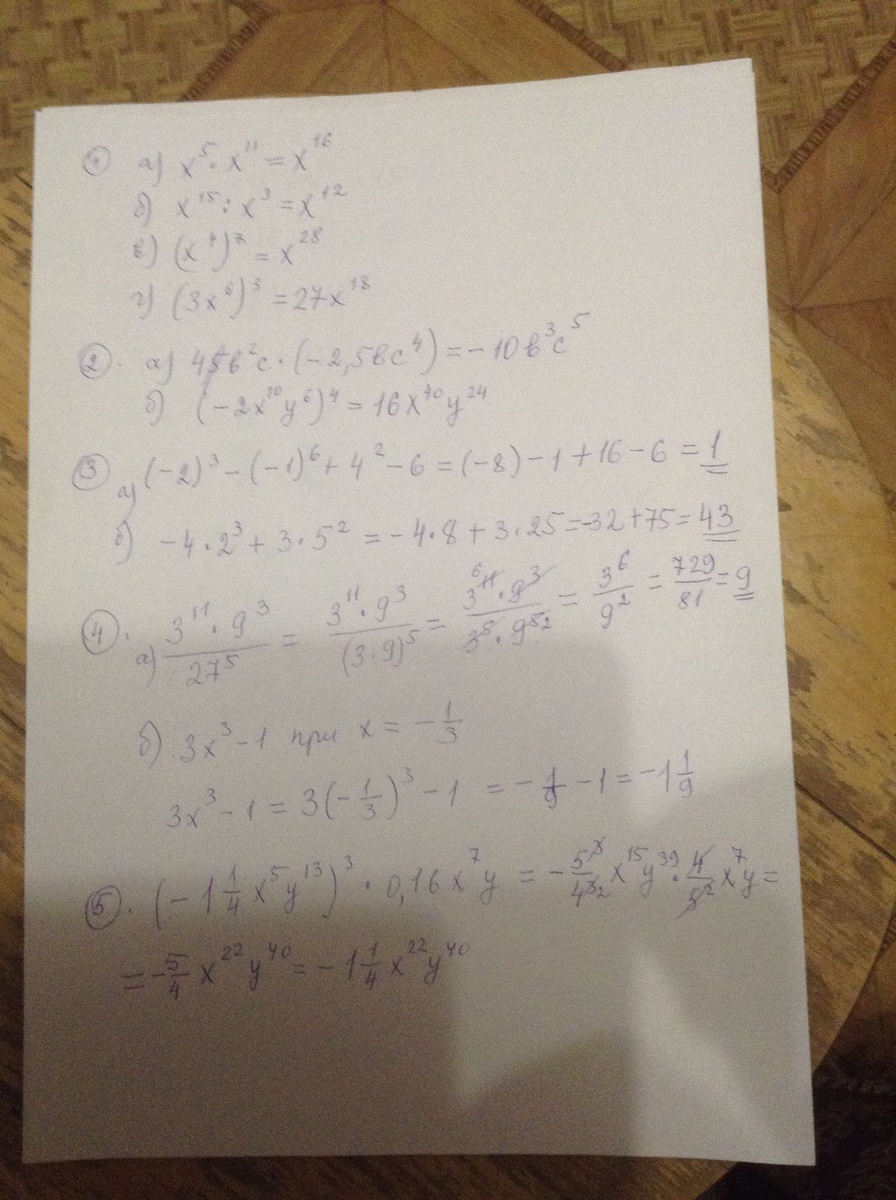 ① а) x⁵ · x¹¹ = x¹⁶
б) x¹⁵ : x³ = x¹²
в) (x⁴)⁷ = x²⁸
г) (3x⁶)³ = 27x¹⁸
②. а) 4b²c · (-2,5bc⁴) = -10b³c⁵
б) (-2x¹⁰y⁶)⁴ = 16x⁴⁰y²⁴
③ а) (-2)³ - (-1)⁶ + 4² - 6 = (-8) - 1 + 16 - 6 = 1
б) -4 · 2³ + 3 · 5² = -4 · 8 + 3 · 25 = -32 + 75 = 43
④. а) (3¹¹ · 9³)/(27⁵) = (3¹¹ · 9³)/((3·9)⁵) = (3¹¹ ⁶ · 9³)/(3⁵ · 9⁵ ²) = 3⁶/9² = 729/81 = 9
б) 3x³ - 1 при x = -1/3
3x³ - 1 = 3(-1/3)³ - 1 = -1/9 - 1 = -1 1/9
⑤. (-1 1/4 x⁵y¹³)³ · 0,16x⁷y = -5³/4³ ² x¹⁵y³⁹ · 4/5² x⁷y =
= -5/4 x²²y⁴⁰ = -1 1/4 x²²y⁴⁰